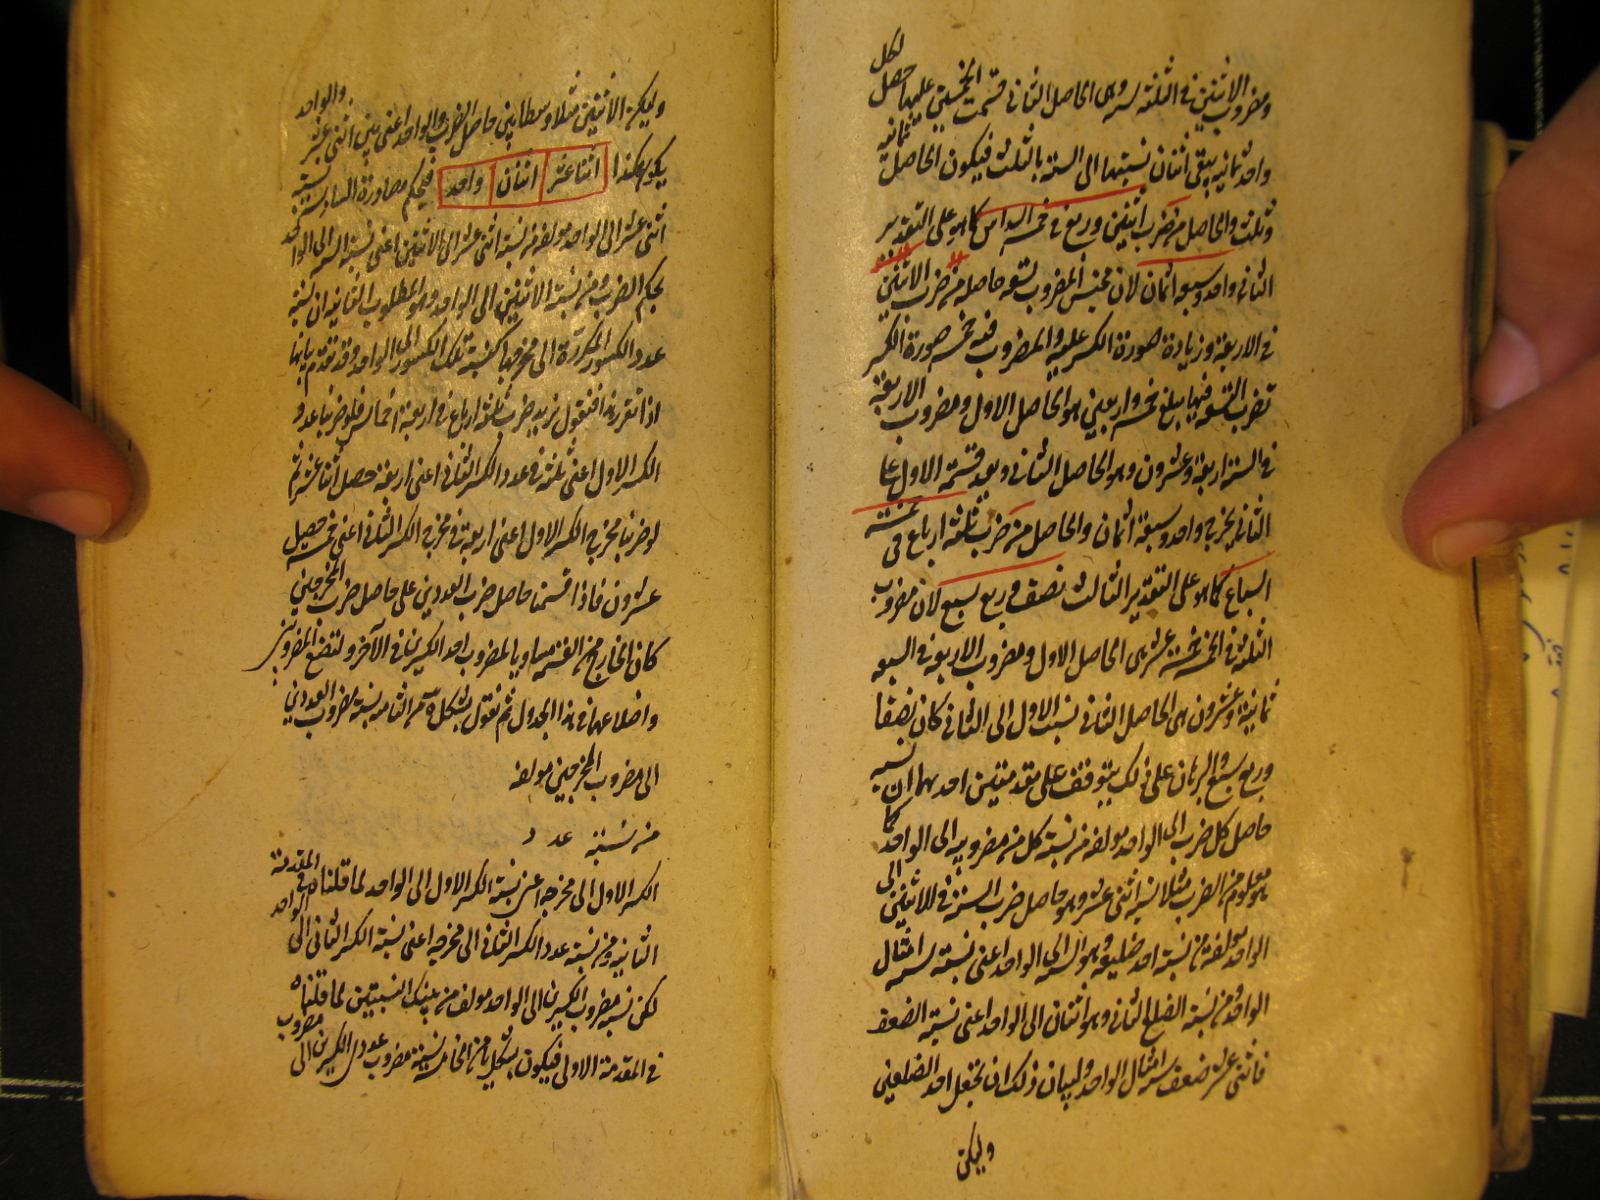 لكل
ومضروب الاثنين في الثلثة ستة وهى الحاصل الثانى قسمت الخمسين عليها حصل
واحد ثمانيه يبقى اثنان نسبتها الى الستة بالثلث فيكون الحاصل ثمانيه
وثلث والحاصل من ضرب اثنين وربع في خمسة اسداس كما هو على التقدير
الثانى واحد وسبعه اثمان لان مجنس المضروب تسعه حاصله من ضرب الاثنين
في الاربعة وزيادة صورة الكسر عليه والمضروب فيه خمسة صورة الكسر
تضرب التسعه فيها يبلغ خمسه واربعين هو الحاصل الاول ومضروب الاربعة
في الستة اربعة وعشرون وهو الحاصل الثانى وبعد قسمة الاول على
الثانى يخرج واحد وسبعة اثمان والحاصل من ضرب ثلثة ارباع فى خمسة
اسباع كما هو على التقدير الثالث نصف وربع سبع لان مضروب
الثلثه في الخمسة خمسة عشر هى الحاصل الاول ومضروب الاربعه فى السبعه
ثمانية وعشرون هى الحاصل الثانى نسبت الاول الى الثانى كان نصفا
وربع سبع والبرهان على ذلك يتوقف على مقدمتين احديهما ان نسبة
حاصل كل ضرب الى الواحد مولفه من نسبة كل من مضروبيه الى الواحد كما
هو معلوم من الضرب مثلا نسبة اثنى عشر وهو حاصل ضرب الستة في الاثنين الى
الواحد مولفة من نسبة احد ضلعيه وهو الستة الى الواحد اعنى نسبة ستة امثال
الواحد ومن نسبة الضلع الثانى وهو اثنان الى الواحد اعنى نسبة الضعف
فاثنى عشر ضعف ستة امثال الواحد ولبيان ذلك ان نجعل احد الضلعين
وليكن
وليكن الاثنين مثلا وسطا بين حاصل الضرب والواحد اعنى بين اثنى عشر والواحد
يكون هكذا اثنا عشر اثنان واحد فبحكم مصادرة السادسة نسبة
اثنى عشر الى الواحد مولفه من نسبة اثنى عشر الى الاثنين اعنى نسبة الستة الى الواحد
بحكم الضرب ومن نسبة الاثنين الى الواحد وهو المطلوب الثانيه ان نسبة
عدد الكسور المكررة الى مخرجها كنسبة تلك الكسور الى الواحد وقد تقدم بيانها
اذا تقرر هذا فنقول نريد ضرب ثلثة ارباع في اربعة اخماس فلو ضربنا عدد
الكسر الاول اعنى ثلثة في عدد الكسر الثانى اعنى اربعة حصل اثنا عشر ثم
لو ضربنا مخرج الكسر الاول اعنى اربعة في مخرج الكسر الثانى اعنى خمسة حصل
عشرون فاذا قسمنا حاصل ضرب العددين على حاصل ضرب المخرجين
كان الخارج من القسمة مساويا لمضروب احد الكسرين في الآخر ولنضع المضروبين
واضلاعهما في هذا الجدول ثم نقول بشكل ه من الثامنه نسبة مضروب العددين
الى مضروب المخرجين مولفه
من نسبة عدد
الكسر الاول الى مخرجه اعنى نسبة الكسر الاول الى الواحد لما قلناه في المقدمة
الثانيه ومن نسبة عدد الكسر الثانى الى مخرجه اعنى نسبة الكسر الثانى الى الواحد
لكن نسبة مضروب الكسرين الى الواحد مولفه من تينك النسبتين لما قلناه
في المقدمة الاولى فيكون بشكل يا من الخامسة نسبة مضروب عددى الكسرين الى مضروب